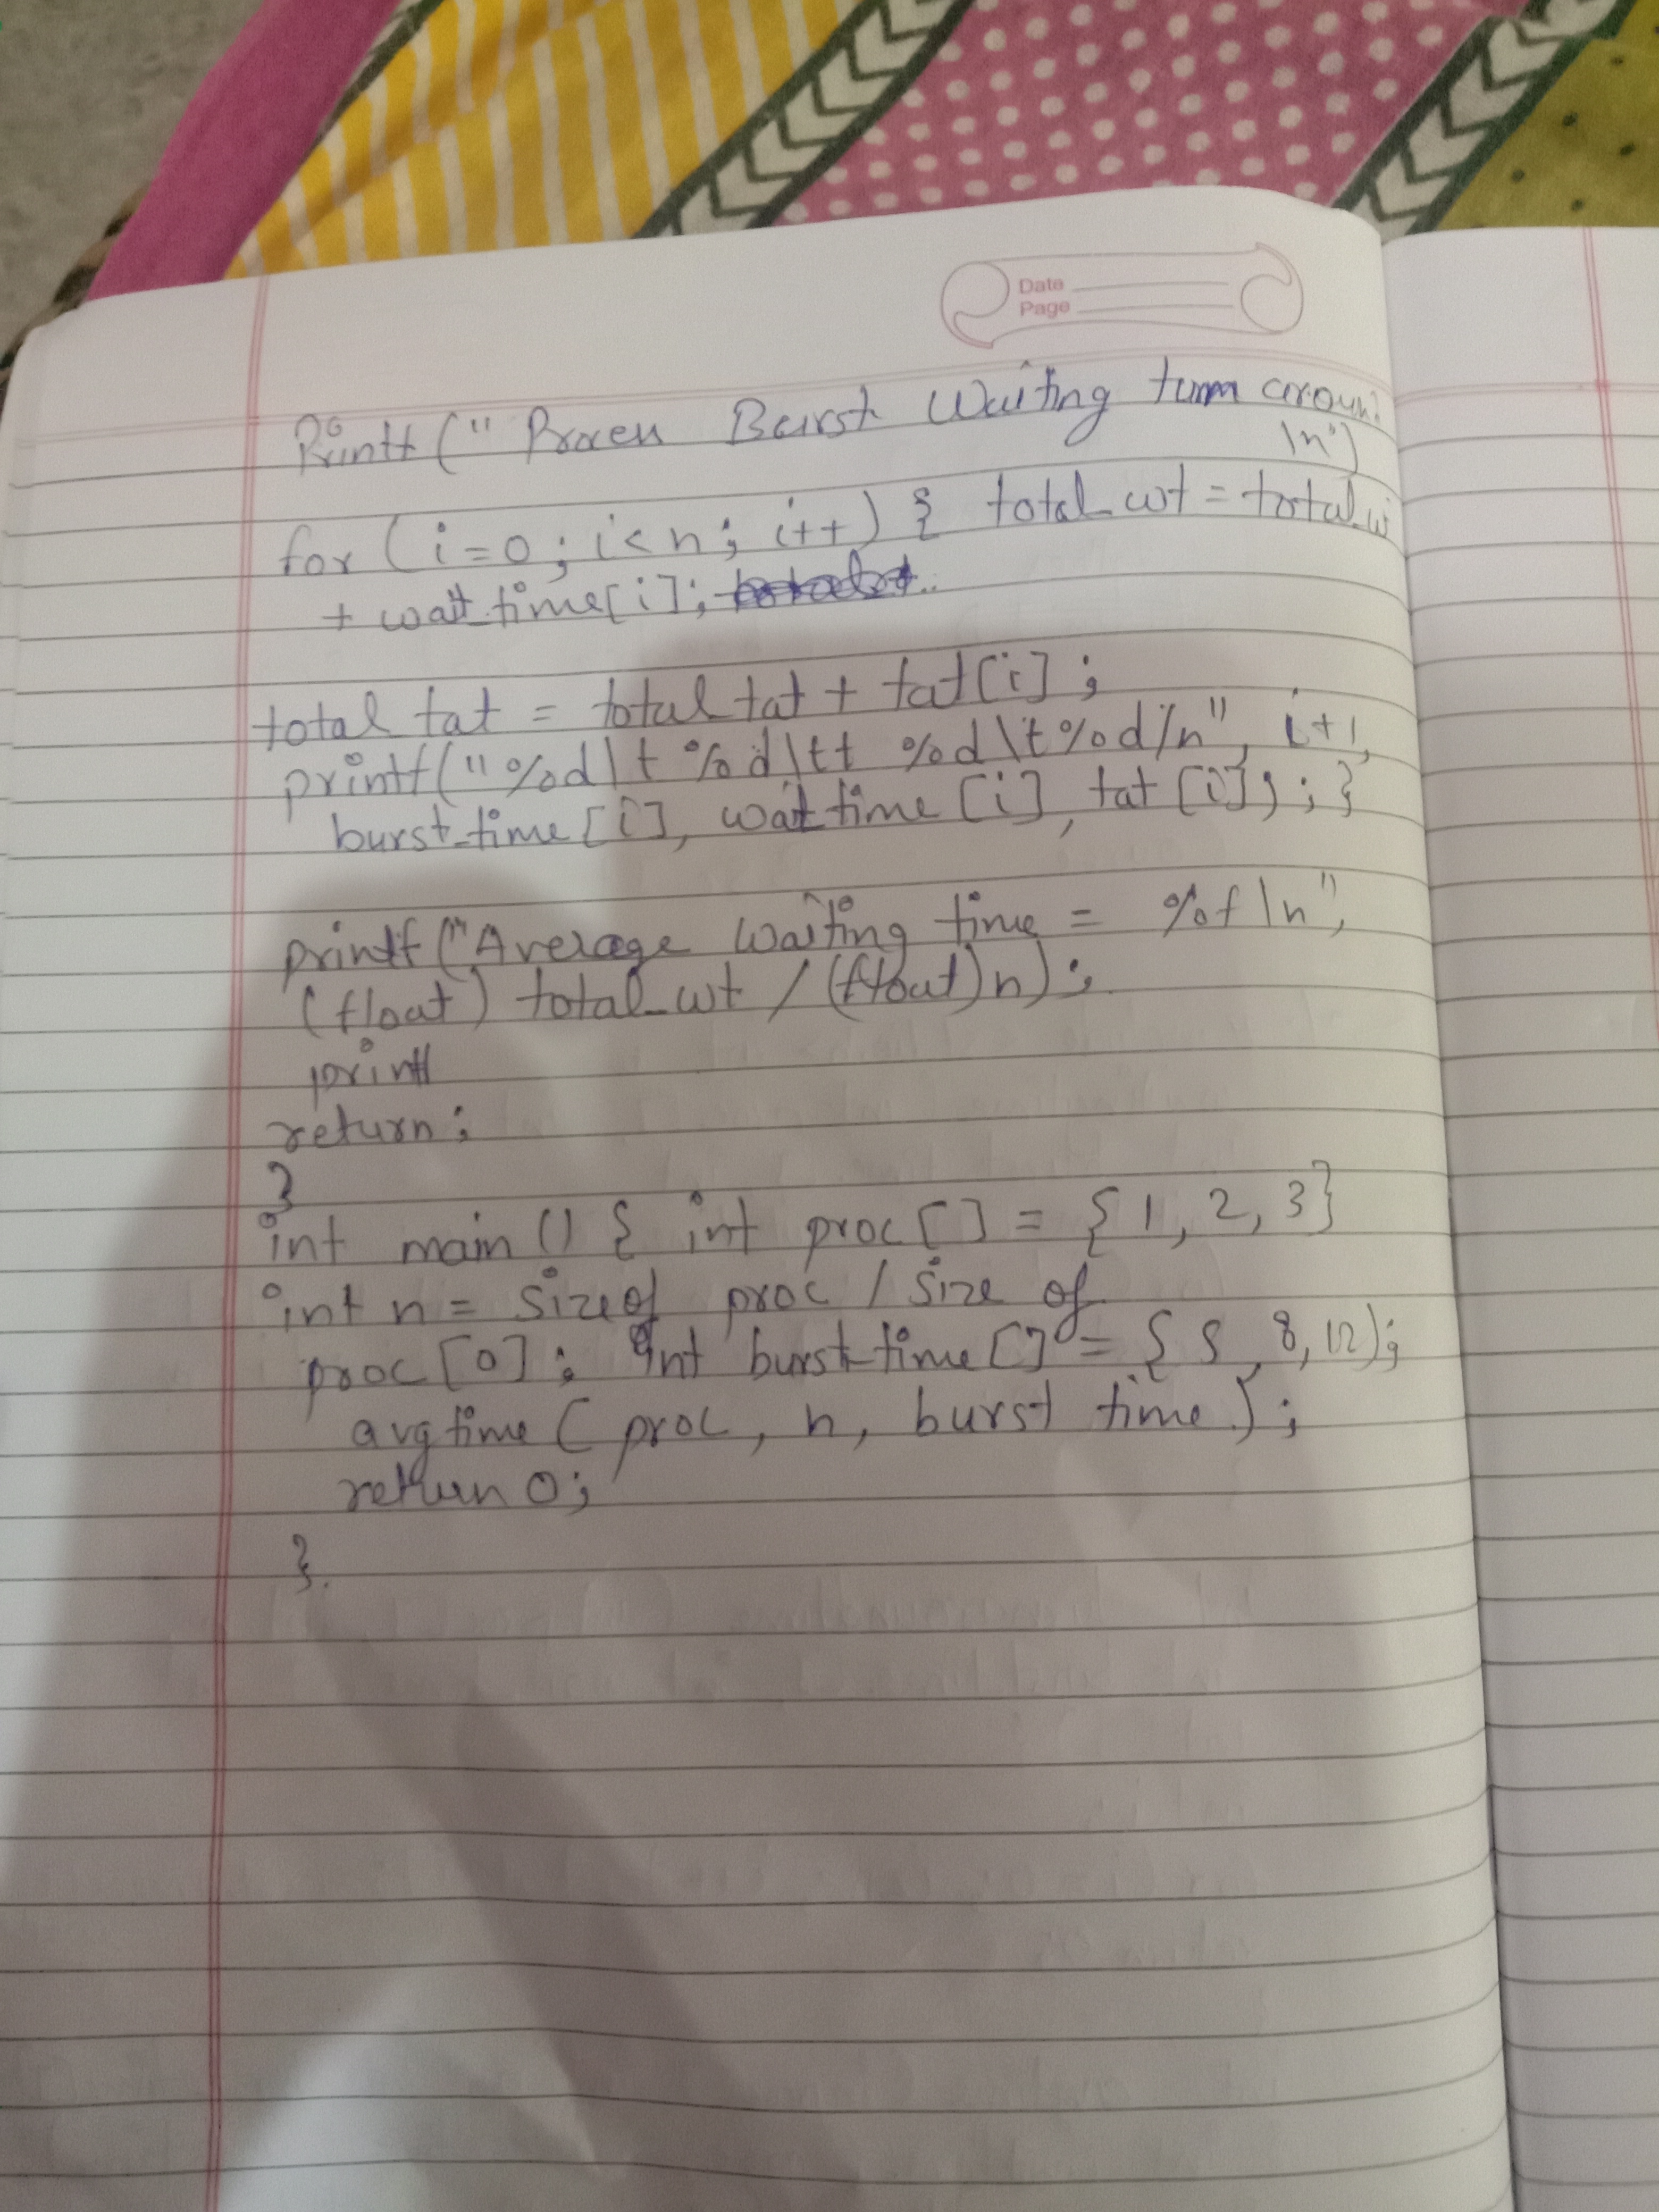 Date
Page
Printf (" Process Burst Waiting turn aroun
\n")
for (i=0; i<n; i++) { total_wt = total_w
+ wait_time[i];
total tat = total tat + tat[i];
printf("%d\t %d\tt %d\t%d/n", i+1,
burst_time[i], wait time [i], tat [i]); }
printf ("Average waiting time = %f \n",
(float) total_wt / (float)n);
printf
return;
}
int main () { int proc[] = {1, 2, 3}
int n = sizeof proc / size of
proc[0]; int burst-time[] = {5, 8, 12);
avg time ( proc, n, burst time);
return 0;
}.